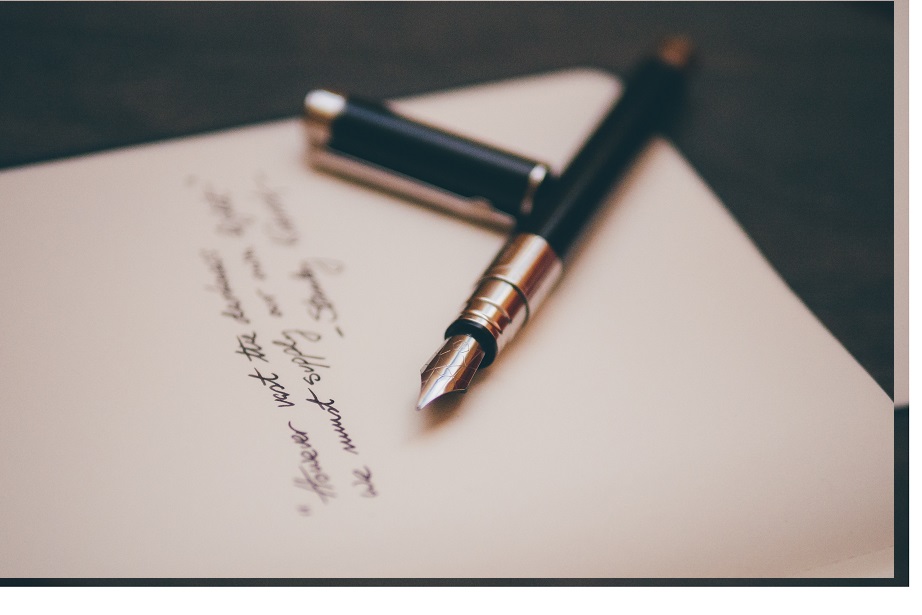 "However vast the darkness
we must supply our own light"
-Stanley